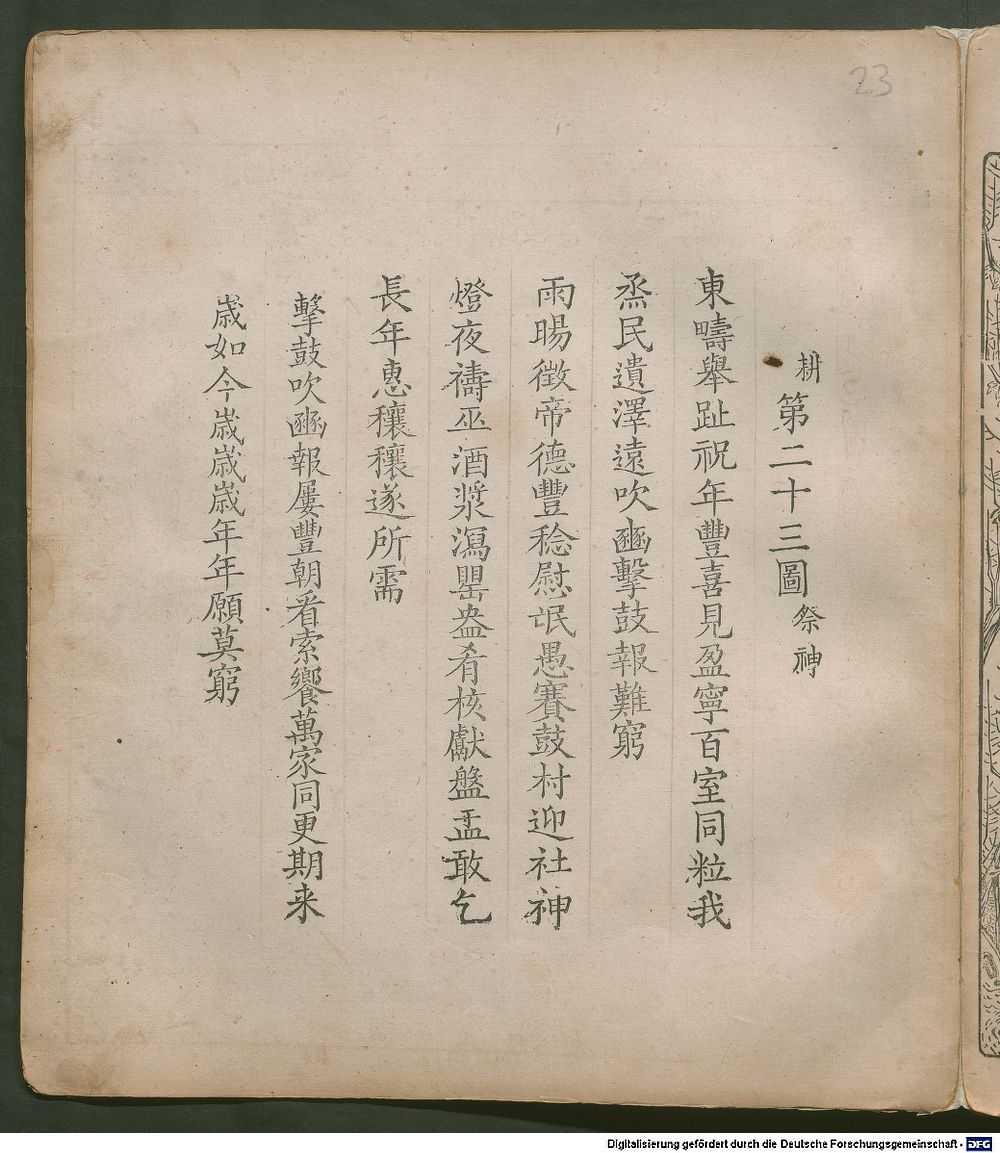 23
耕第二十三圖祭神
東疇舉趾祝年豐喜見盈寧百室同粒我
烝民遺澤遠吹豳擊鼓報難窮
雨暘徵帝德豐稔慰氓愚賽鼓村迎社神
燈夜禱巫酒漿瀉罌盎肴核獻盤盂敢乞
長年惠穰穰遂所需
擊鼓吹豳報屢豐朝看索饗萬家同更期来
歳如今歳歳歳年年願莫窮
Digitalisierung gefördert durch die Deutsche Forschungsgemeinschaft - DFG